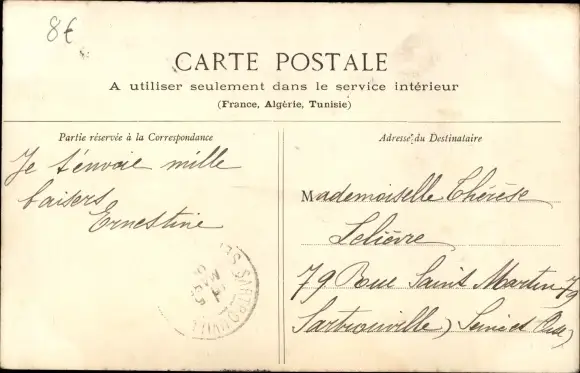 8€
CARTE POSTALE
A utiliser seulement dans le service intérieur
(France, Algérie, Tunisie)
Partie réservée à la Correspondance
Je t'envoie mille
baisers
Ernestine
Adresse du Destinataire
Mademoiselle Thérèse
Lelièvre
79 Rue Saint Martin 79
Sartrouville (Seine et Oise)
SARTROUVILLE